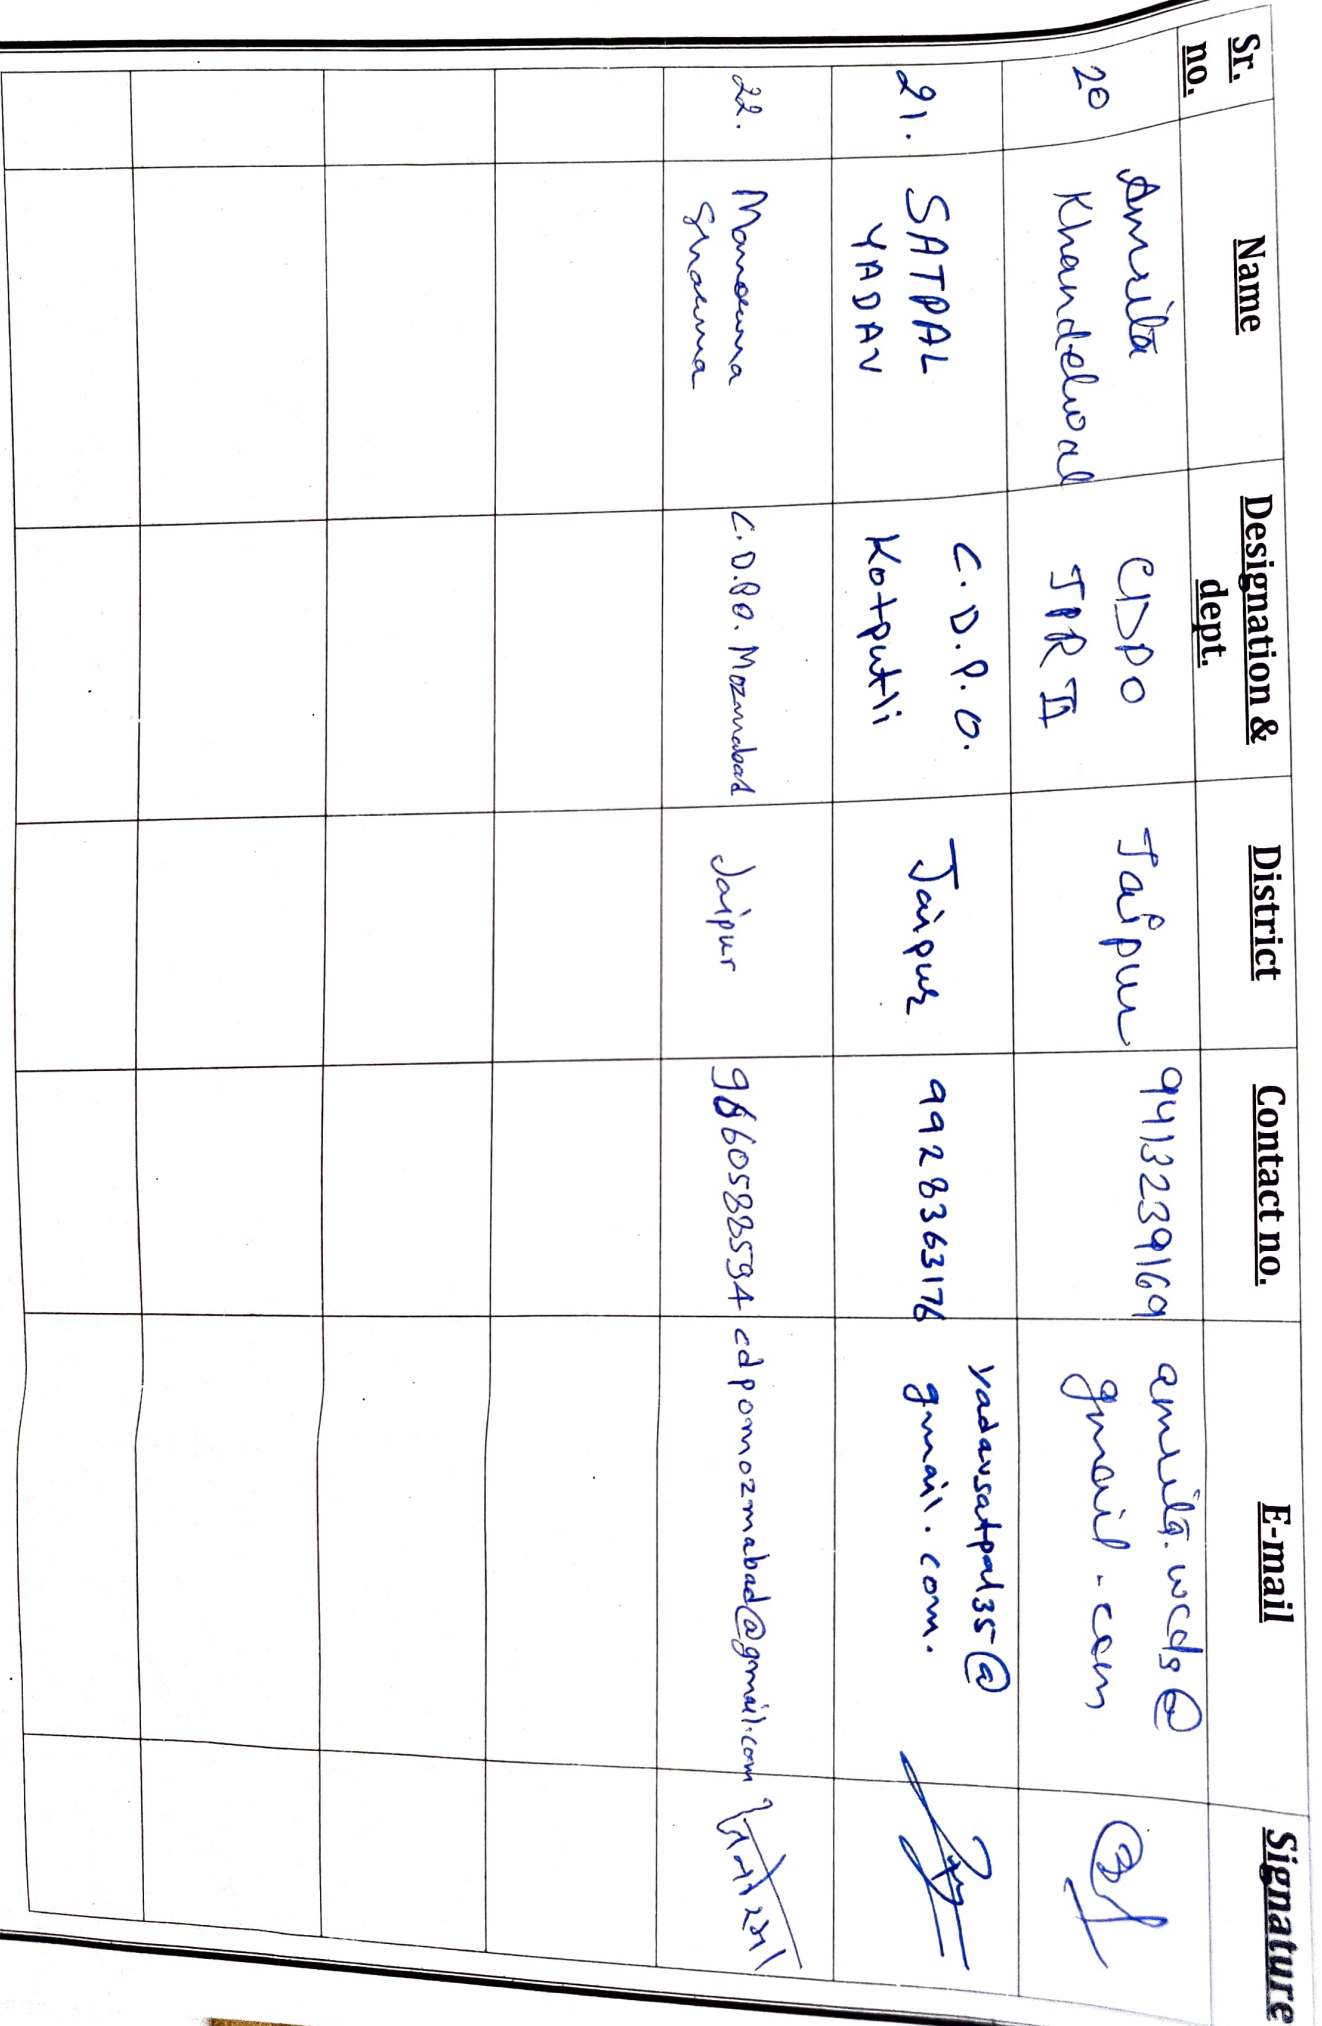 Sr. no.
Name
Designation & dept.
District
Contact no.
E-mail
Signature
20
Amrita
Khandelwal
CDPO
JPR II
Jaipur
9413239169
amrita.wcds@
gmail.com
21.
SATPAL
YADAV
C.D.P.O.
Kotputli
Jaipur
9928363176
yadavsatpal35@
gmail.com.
22.
Sharma
C.D.P.O. Mozmabad
Jaipur
cdpomozmabad@gmail.com